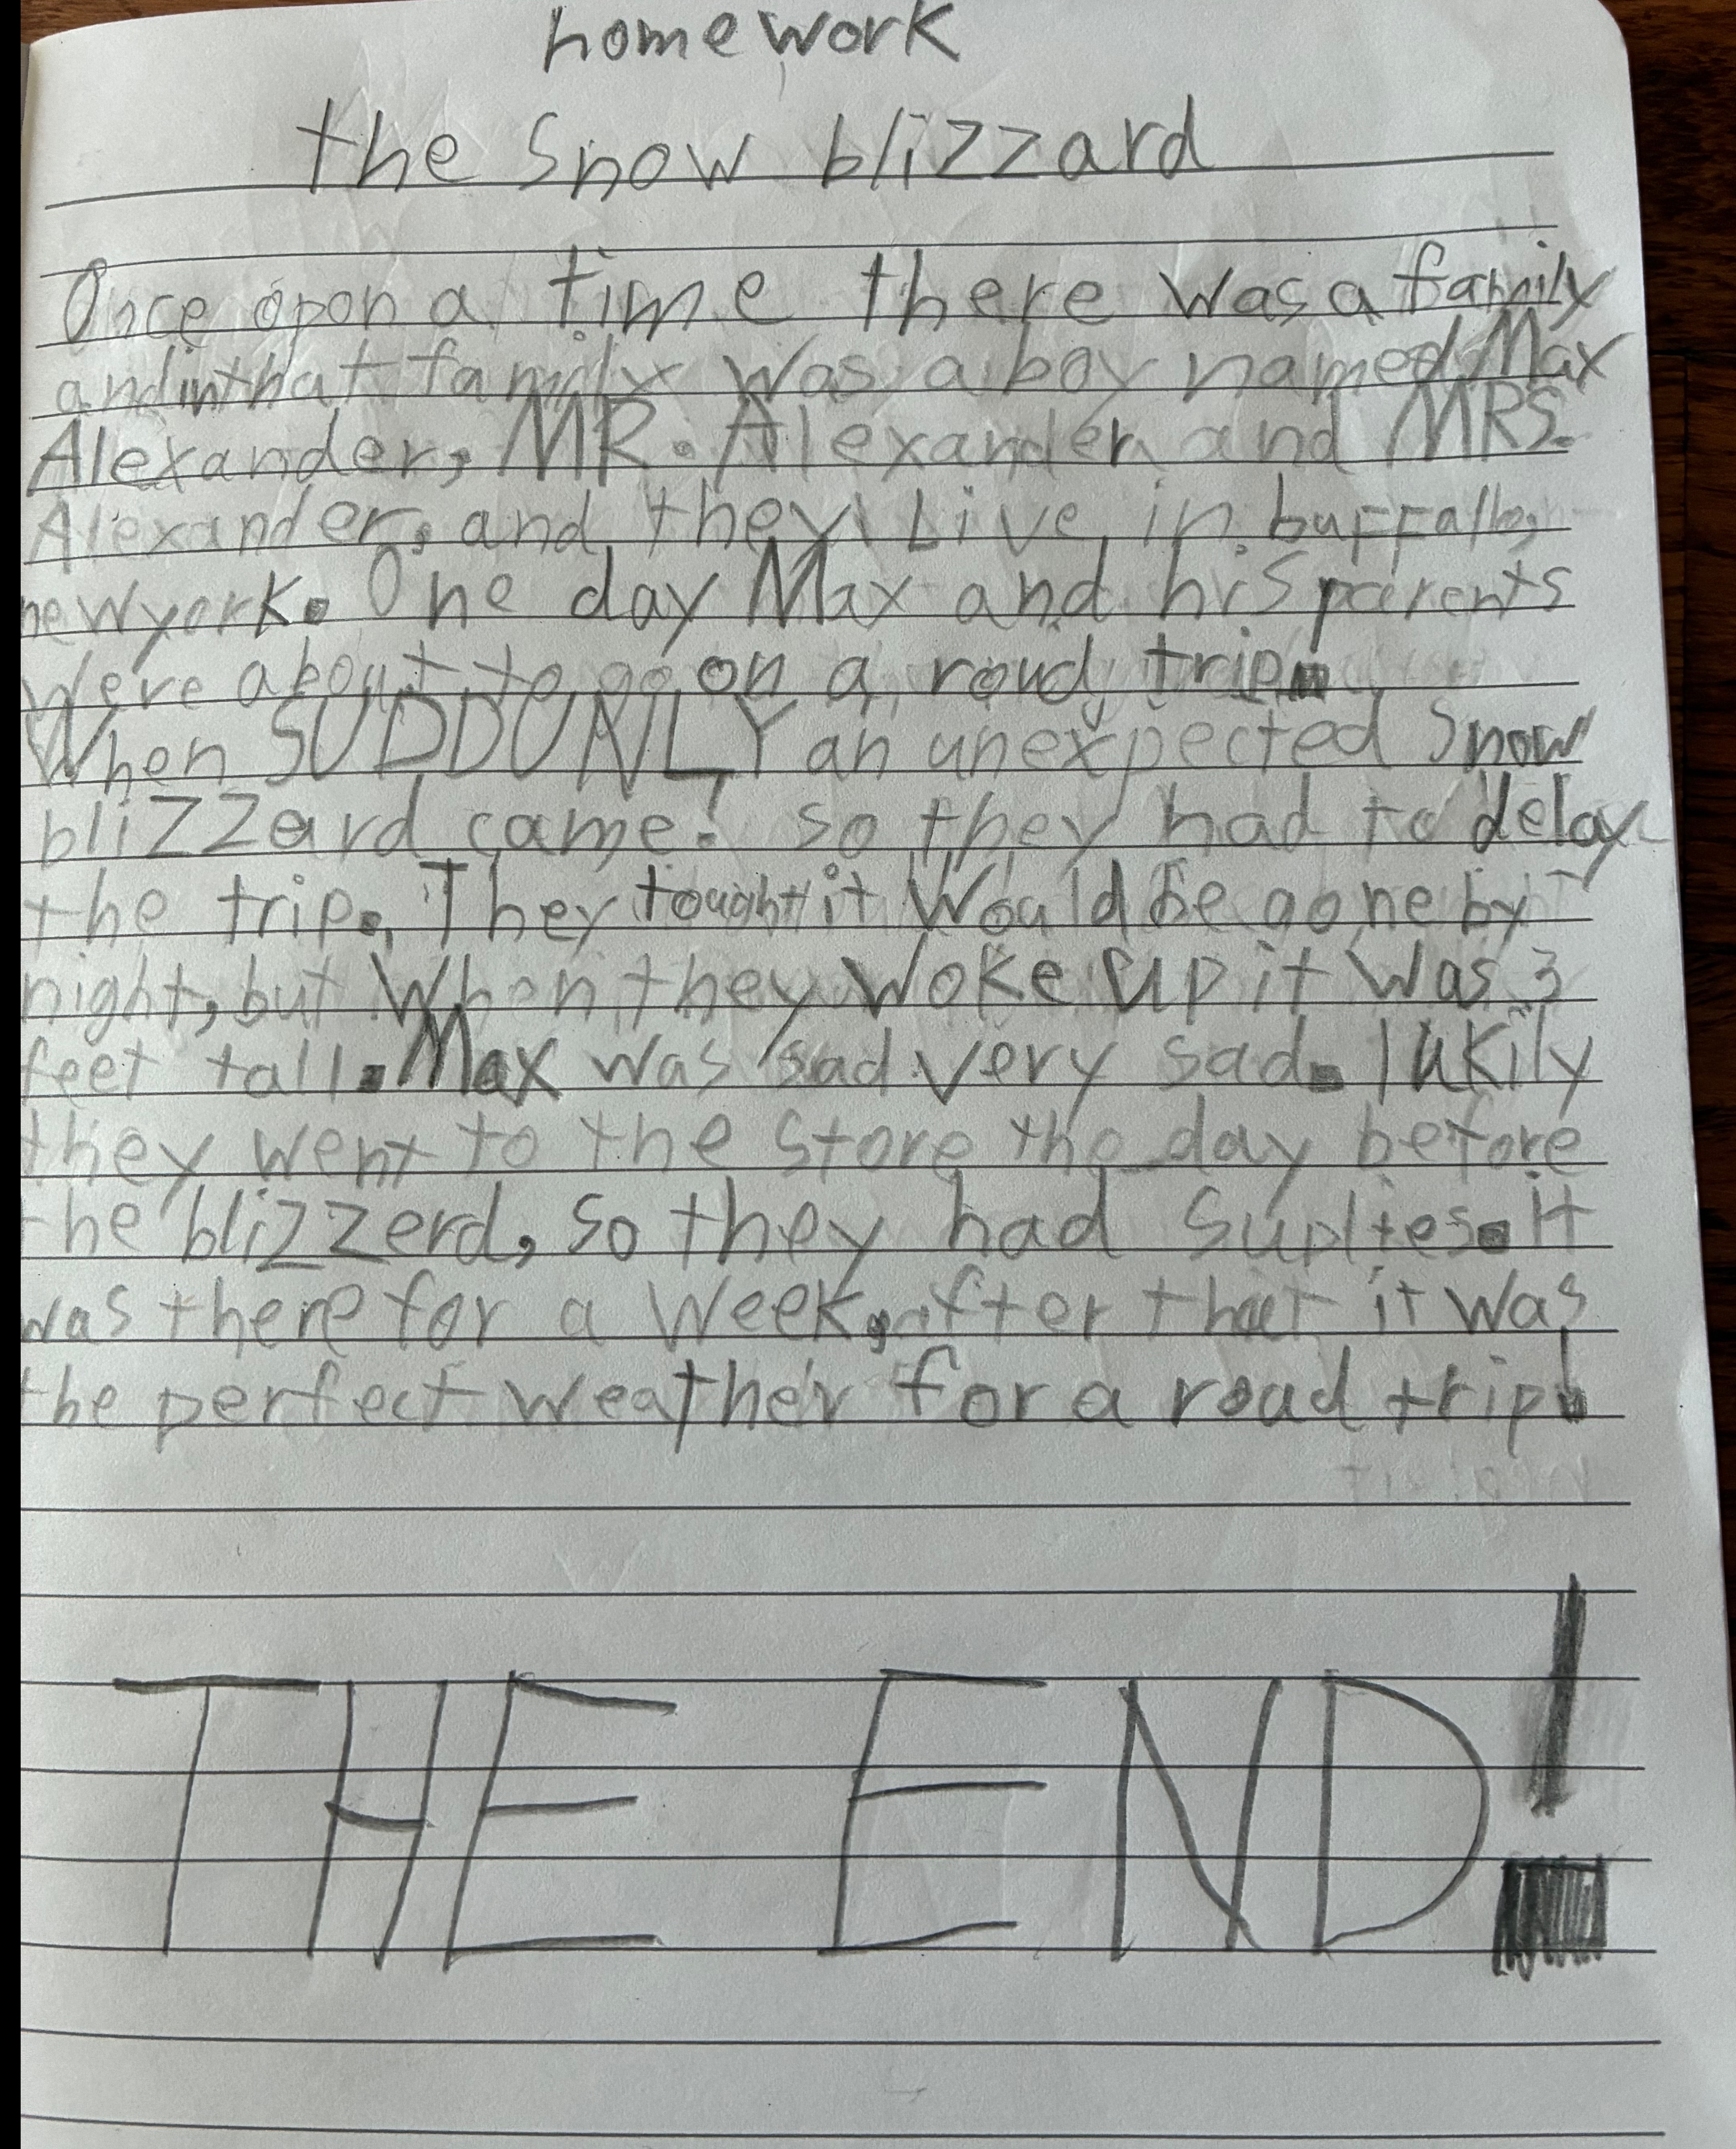 homework
the Snow blizzard
Once opon a time there was a family
and in that family was a boy named Max
Alexander, MR. Alexander and MRS.
Alexander, and they Live in buffallo,
new york. One day Max and his parents
Were about to go on a road trip.
When SUDDUNLY an unexpected snow
blizzard came! so they had to delay
the trip. They tought it Would be gone by
night, but When they Woke up it was 3
feet tall. Max was sad very sad. lukily
they went to the store the day before
the blizzerd, so they had suplies. it
was there for a week, after that it was
the perfect weather for a road trip!
THE END!